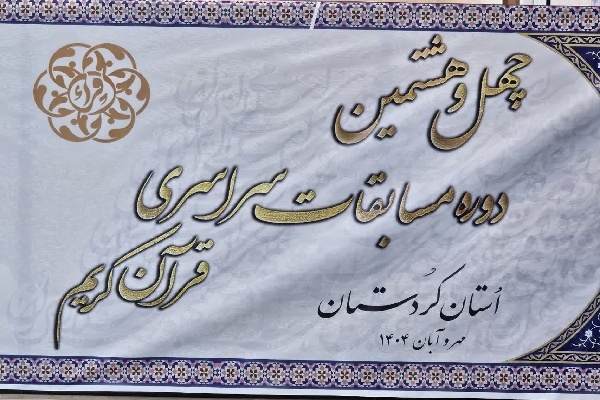 چهل و هشتمین
دوره مسابقات سراسری
قرآن کریم
اُستان کُردستان
مهر و آبان ۱۴۰۴